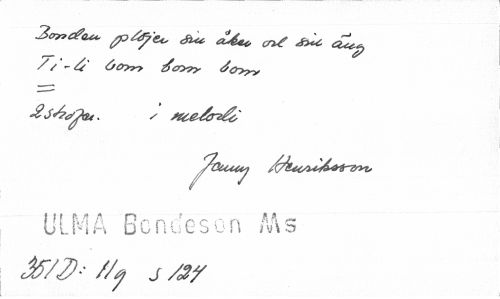 Bonden plöjer sin åker och sin äng
Ti-li bom bom bom
=
2 strofer. i melodi
Janny Henriksson
ULMA Bondeson Ms
351 D: 11q s 124